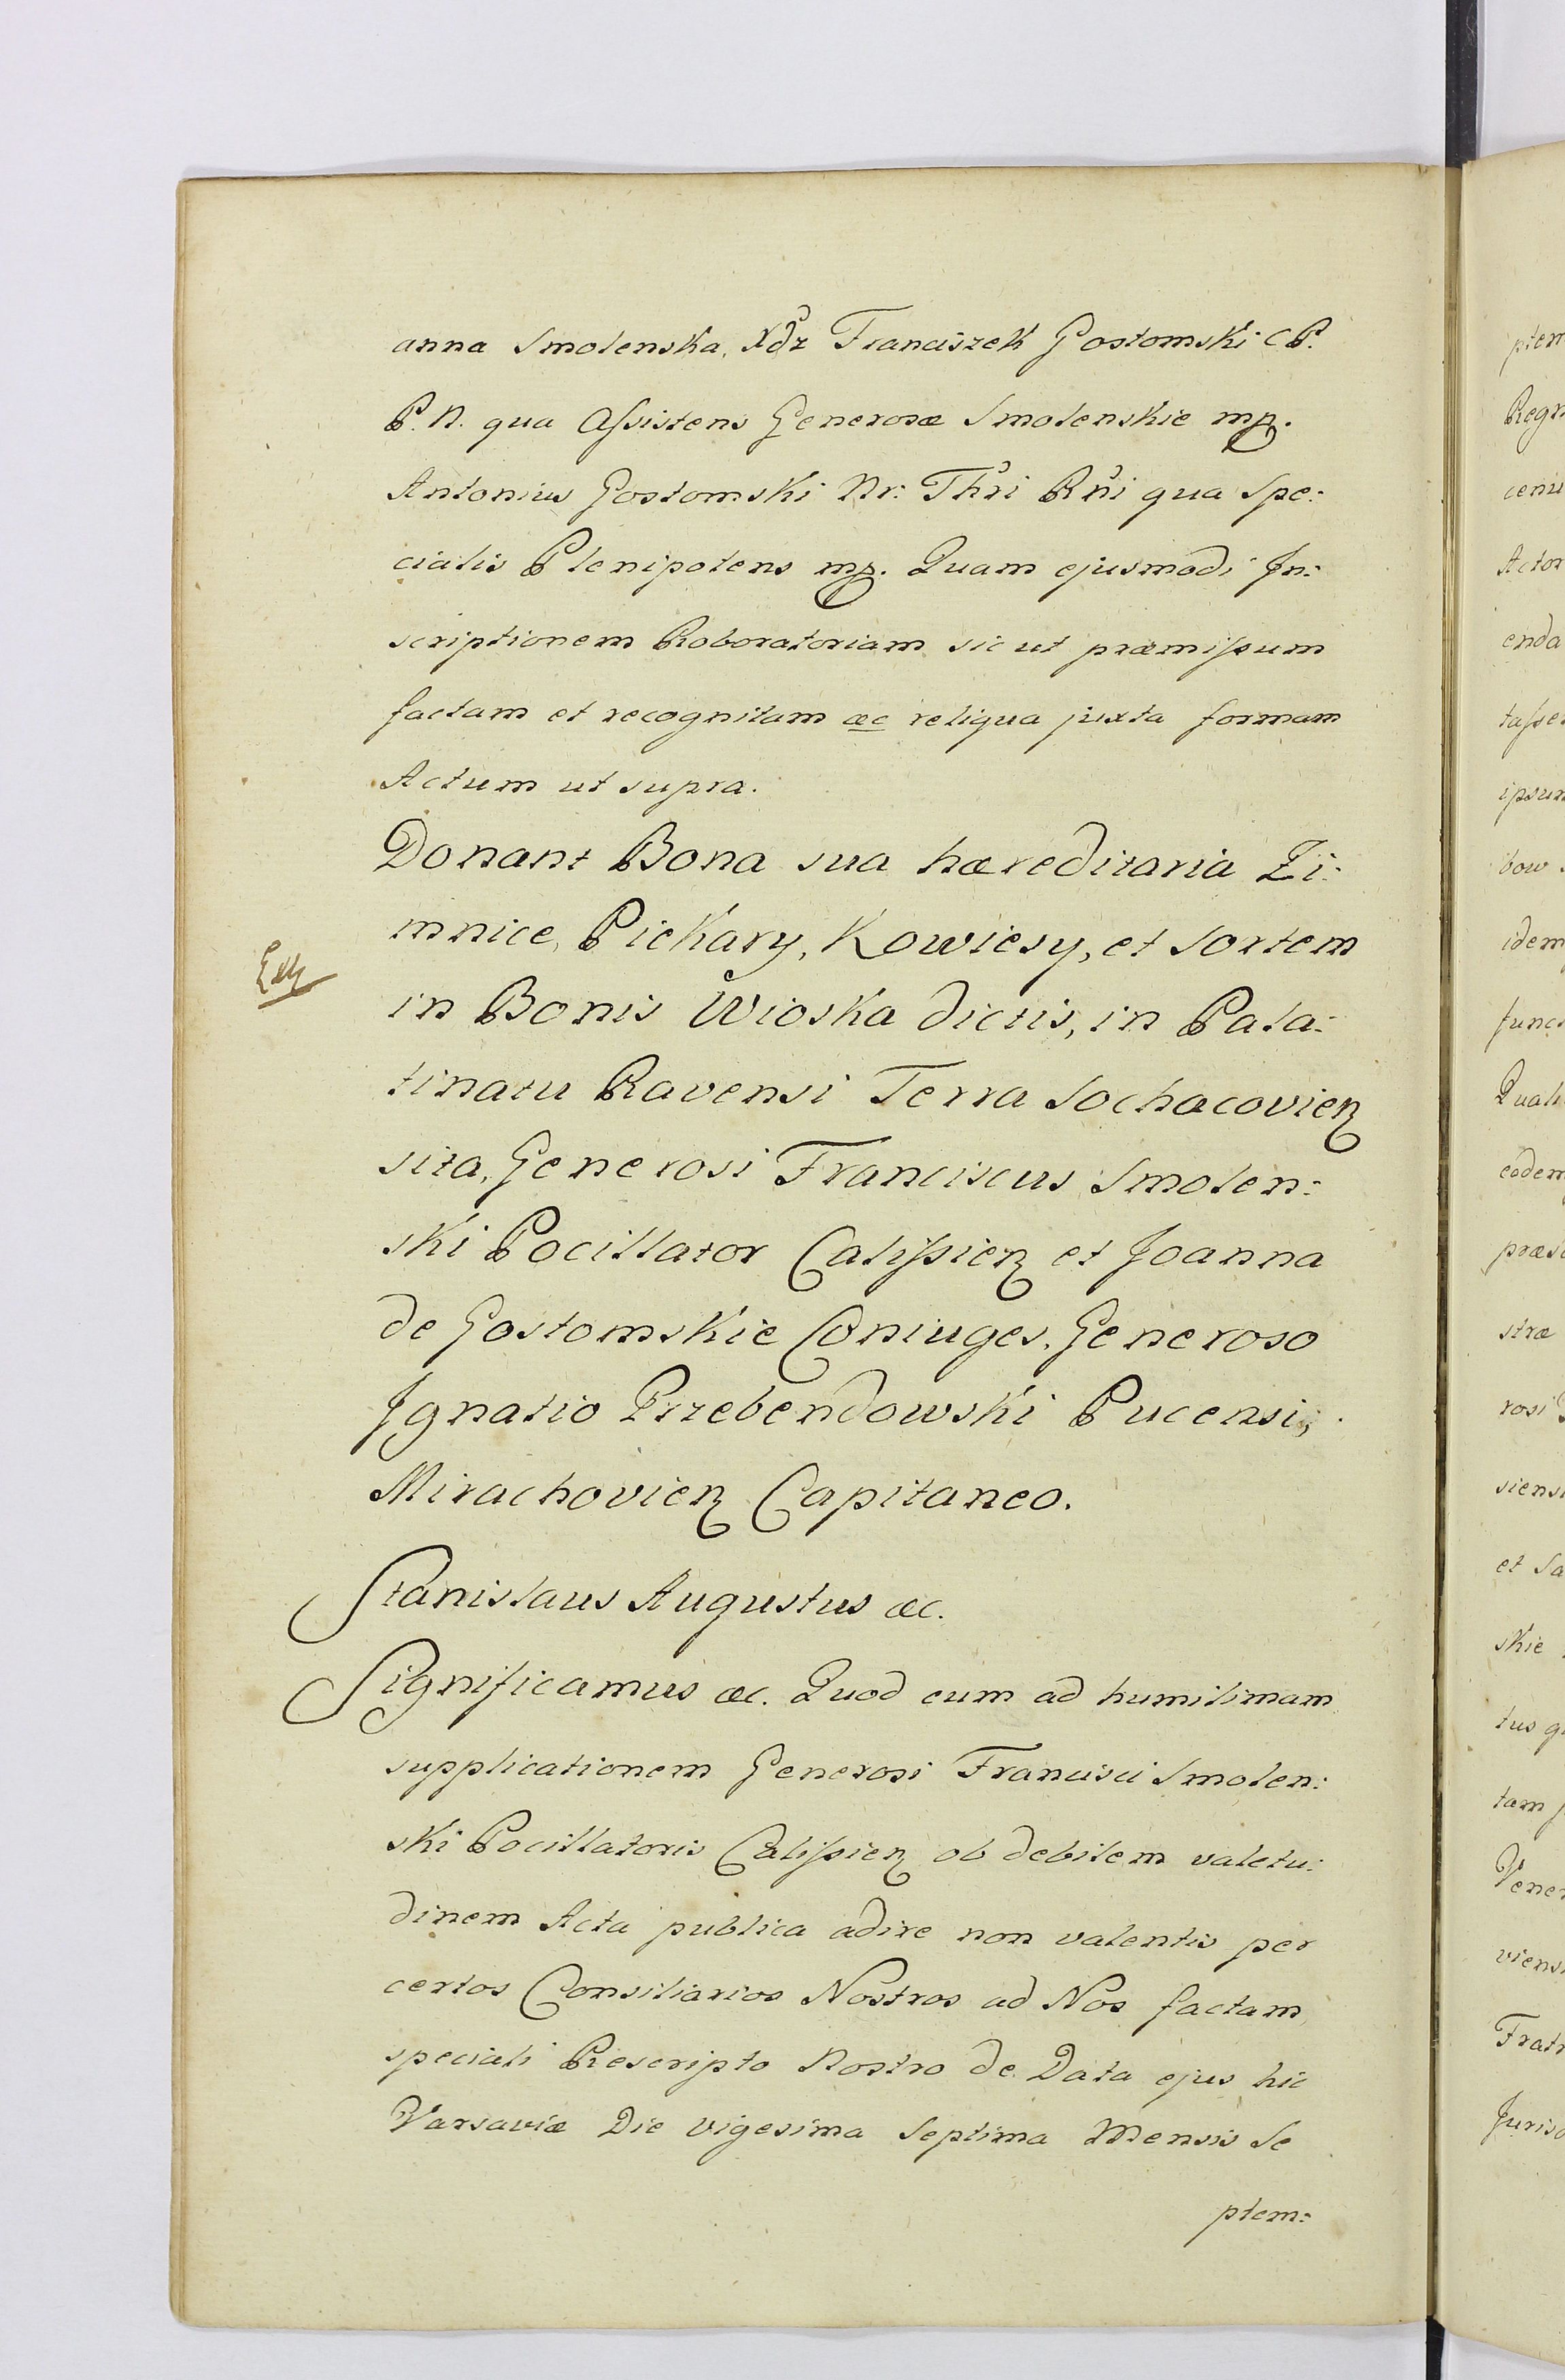 anna Smolenska, Xdz Franciszek Gostomski C P.
P. N. qua Assistens Generosæ Smolenskie mp.
Antonius Gostomski Nr: Thri Rni qua Spe:
cialis Plenipotens mp. Quam ejusmodi In:
scriptionem Roboratoriam sic ut præmissum
factam et recognitam æc reliqua juxta formam
Actum ut supra.
Donant Bona sua hæreditaria Zi:
mnice, Piekary, Kowiesy, et sortem
in Bonis Wioska dictis, in Pala:
tinatu Ravensi Terra Sochacovien
sita, Generosi Franciscus Smolen:
ski Pocillator Calissien et Joanna
de Gostomskie Coniuges, Generoso
Ignatio Przebendowski Pucensi,
Mirachovien Capitaneo.
Stanislaus Augustus æc.
Significamus æc. Quod cum ad humilimam
supplicationem Generosi Francisci Smolen:
ski Pocillatoris Calissien ob debilem valetu:
dinem Acta publica adire non valentis per
certos Consiliarios Nostros ad Nos factam
speciali Rescripto Nostro de Data ejus hic
Varsaviæ Die vigesima Septima Mensis Se
ptem: